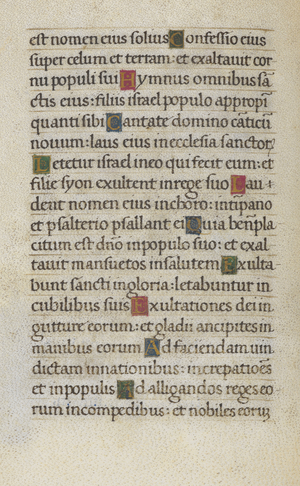 est nomen eius solius Confessio eius
super celum et terram: et exaltauit cor
nu populi sui Hymnus omnibus sā
ctis eius: filiis israel populo appropī
quanti sibi Cantate domino cāticū
nouum: laus eius in ecclesia sanctoꝝ
Letetur israel in eo qui fecit eum: et
filie syon exultent in rege suo Lau
dent nomen eius in choro: in tīpano
et psalterio psallant ei Quia benepla
citum est dn̄o in populo suo: et exal
tauit mansuetos in salutem Exulta
bunt sancti in gloria: letabuntur in
cubilibus suis Exultationes dei in
gutture eorum: et gladii ancipites in
manibus eorum Ad faciendam uin
dictam in nationibus: increpatiōes
et in populis Ad alligandos reges eo
rum in compedibus: et nobiles eoruꝫ